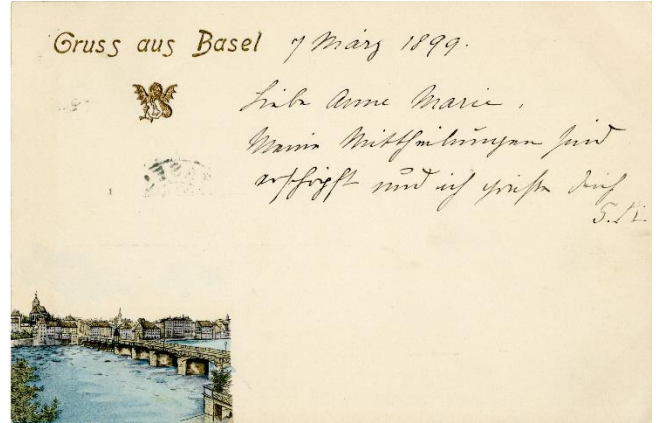 Gruss aus Basel 7 März 1899.
Liebe Anne Marie,
Meine Mittheilungen sind
erschöpft und ich grüße dich